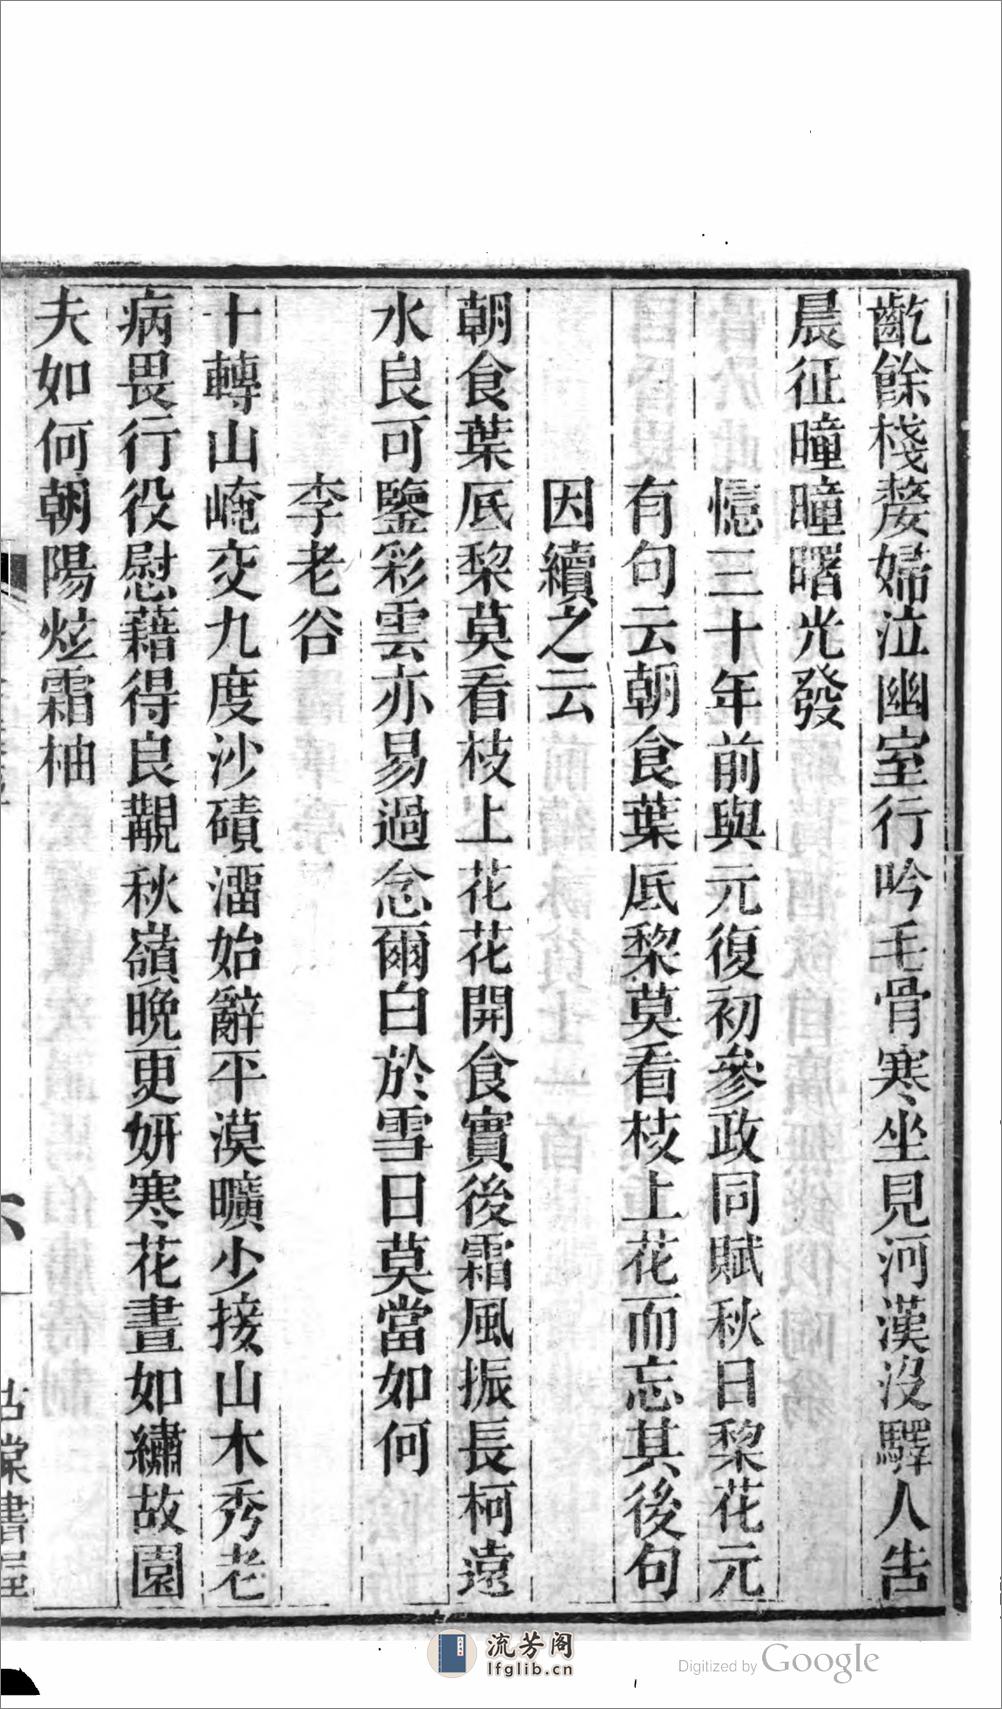 齕餘棧嫠婦泣幽室行吟毛骨寒坐見河漢沒驛人告
晨征曈曈曙光發
憶三十年前與元復初參政同賦秋日棃花元
有句云朝食葉底棃莫看枝上花而忘其後句
因續之云
朝食葉底棃莫看枝上花花開食實後霜風振長柯遠
水良可鑒彩雲亦易過念爾白於雪日莫當如何
李老谷
十轉山崦交九度沙磧溜始辭平漠曠少接山木秀老
病畏行役慰藉得良覯秋嶺晚更妍寒花晝如繡故園
夫如何朝陽炫霜柚
六
古棠書屋
流芳阁
lfglib.cn
Digitized by Google